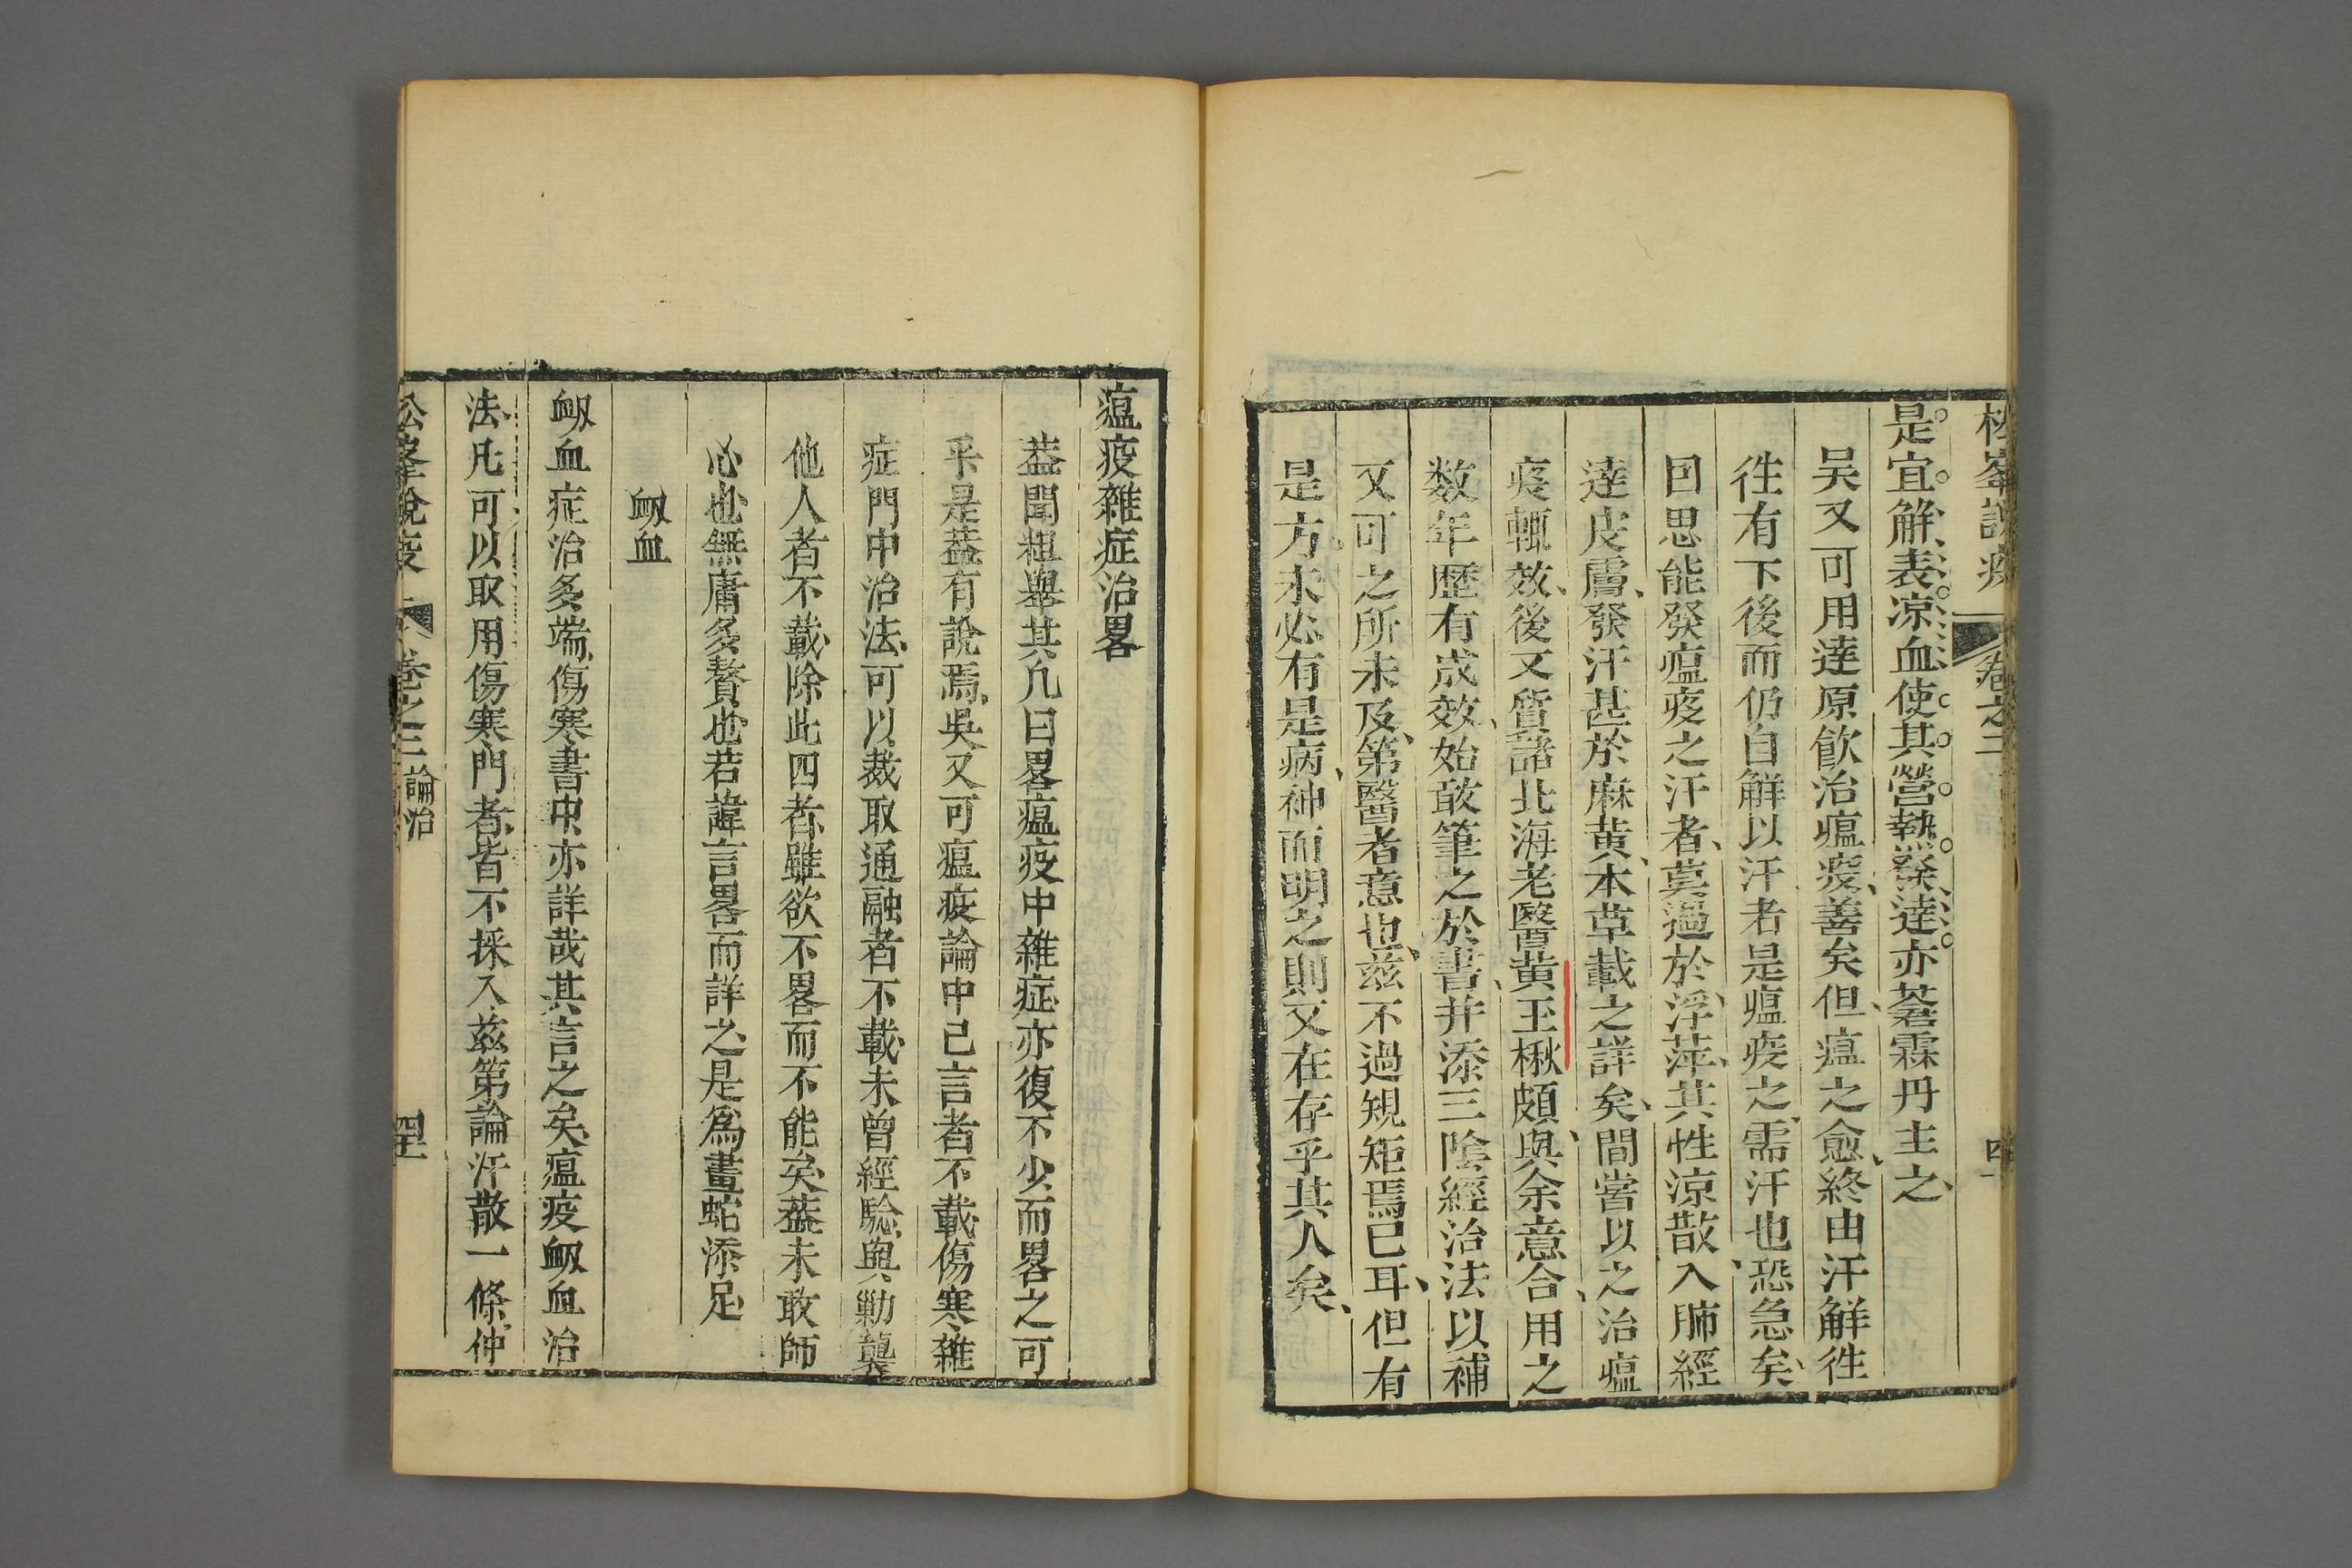 松峯說疫 卷之二 四
是宜解表凉血使其營熱發達亦茗霖丹主之
吴又可用達原飮治瘟疫善矣但瘟之愈終由汗解徃
徃有下後而仍自解以汗者是瘟疫之需汗也恐急矣
囙思能發瘟疫之汗者莫過於浮萍其性凉散入肺經
達皮膚發汗甚於麻黄本草載之詳矣間嘗以之治瘟
疫輒效後又質諸北海老醫黄玉楸頗與余意合用之
数年歷有成效始敢筆之於書并添三陰經治法以補
又可之所未及第醫者意也兹不過䂓矩焉已耳但有
是方未必有是病神而明之則又在存乎其人矣
瘟疫雜症治畧
葢聞粗舉其凡曰畧瘟疫中雜症亦復不少而畧之可
乎是葢有說焉吳又可瘟疫論中已言者不載傷寒雜
症門中治法可以裁取通融者不載未曾經驗與勦襲
他人者不載除此四者雖欲不畧而不能矣葢未敢師
心也無庸多贅也若諱言畧而詳之是爲畫蛇添足
衂血
衂血症治多端傷寒書中亦詳哉其言之矣瘟疫衂血治
法凡可以取用傷寒門者皆不採入兹第論汗散一條仲
松峯說疫 卷之二 論治